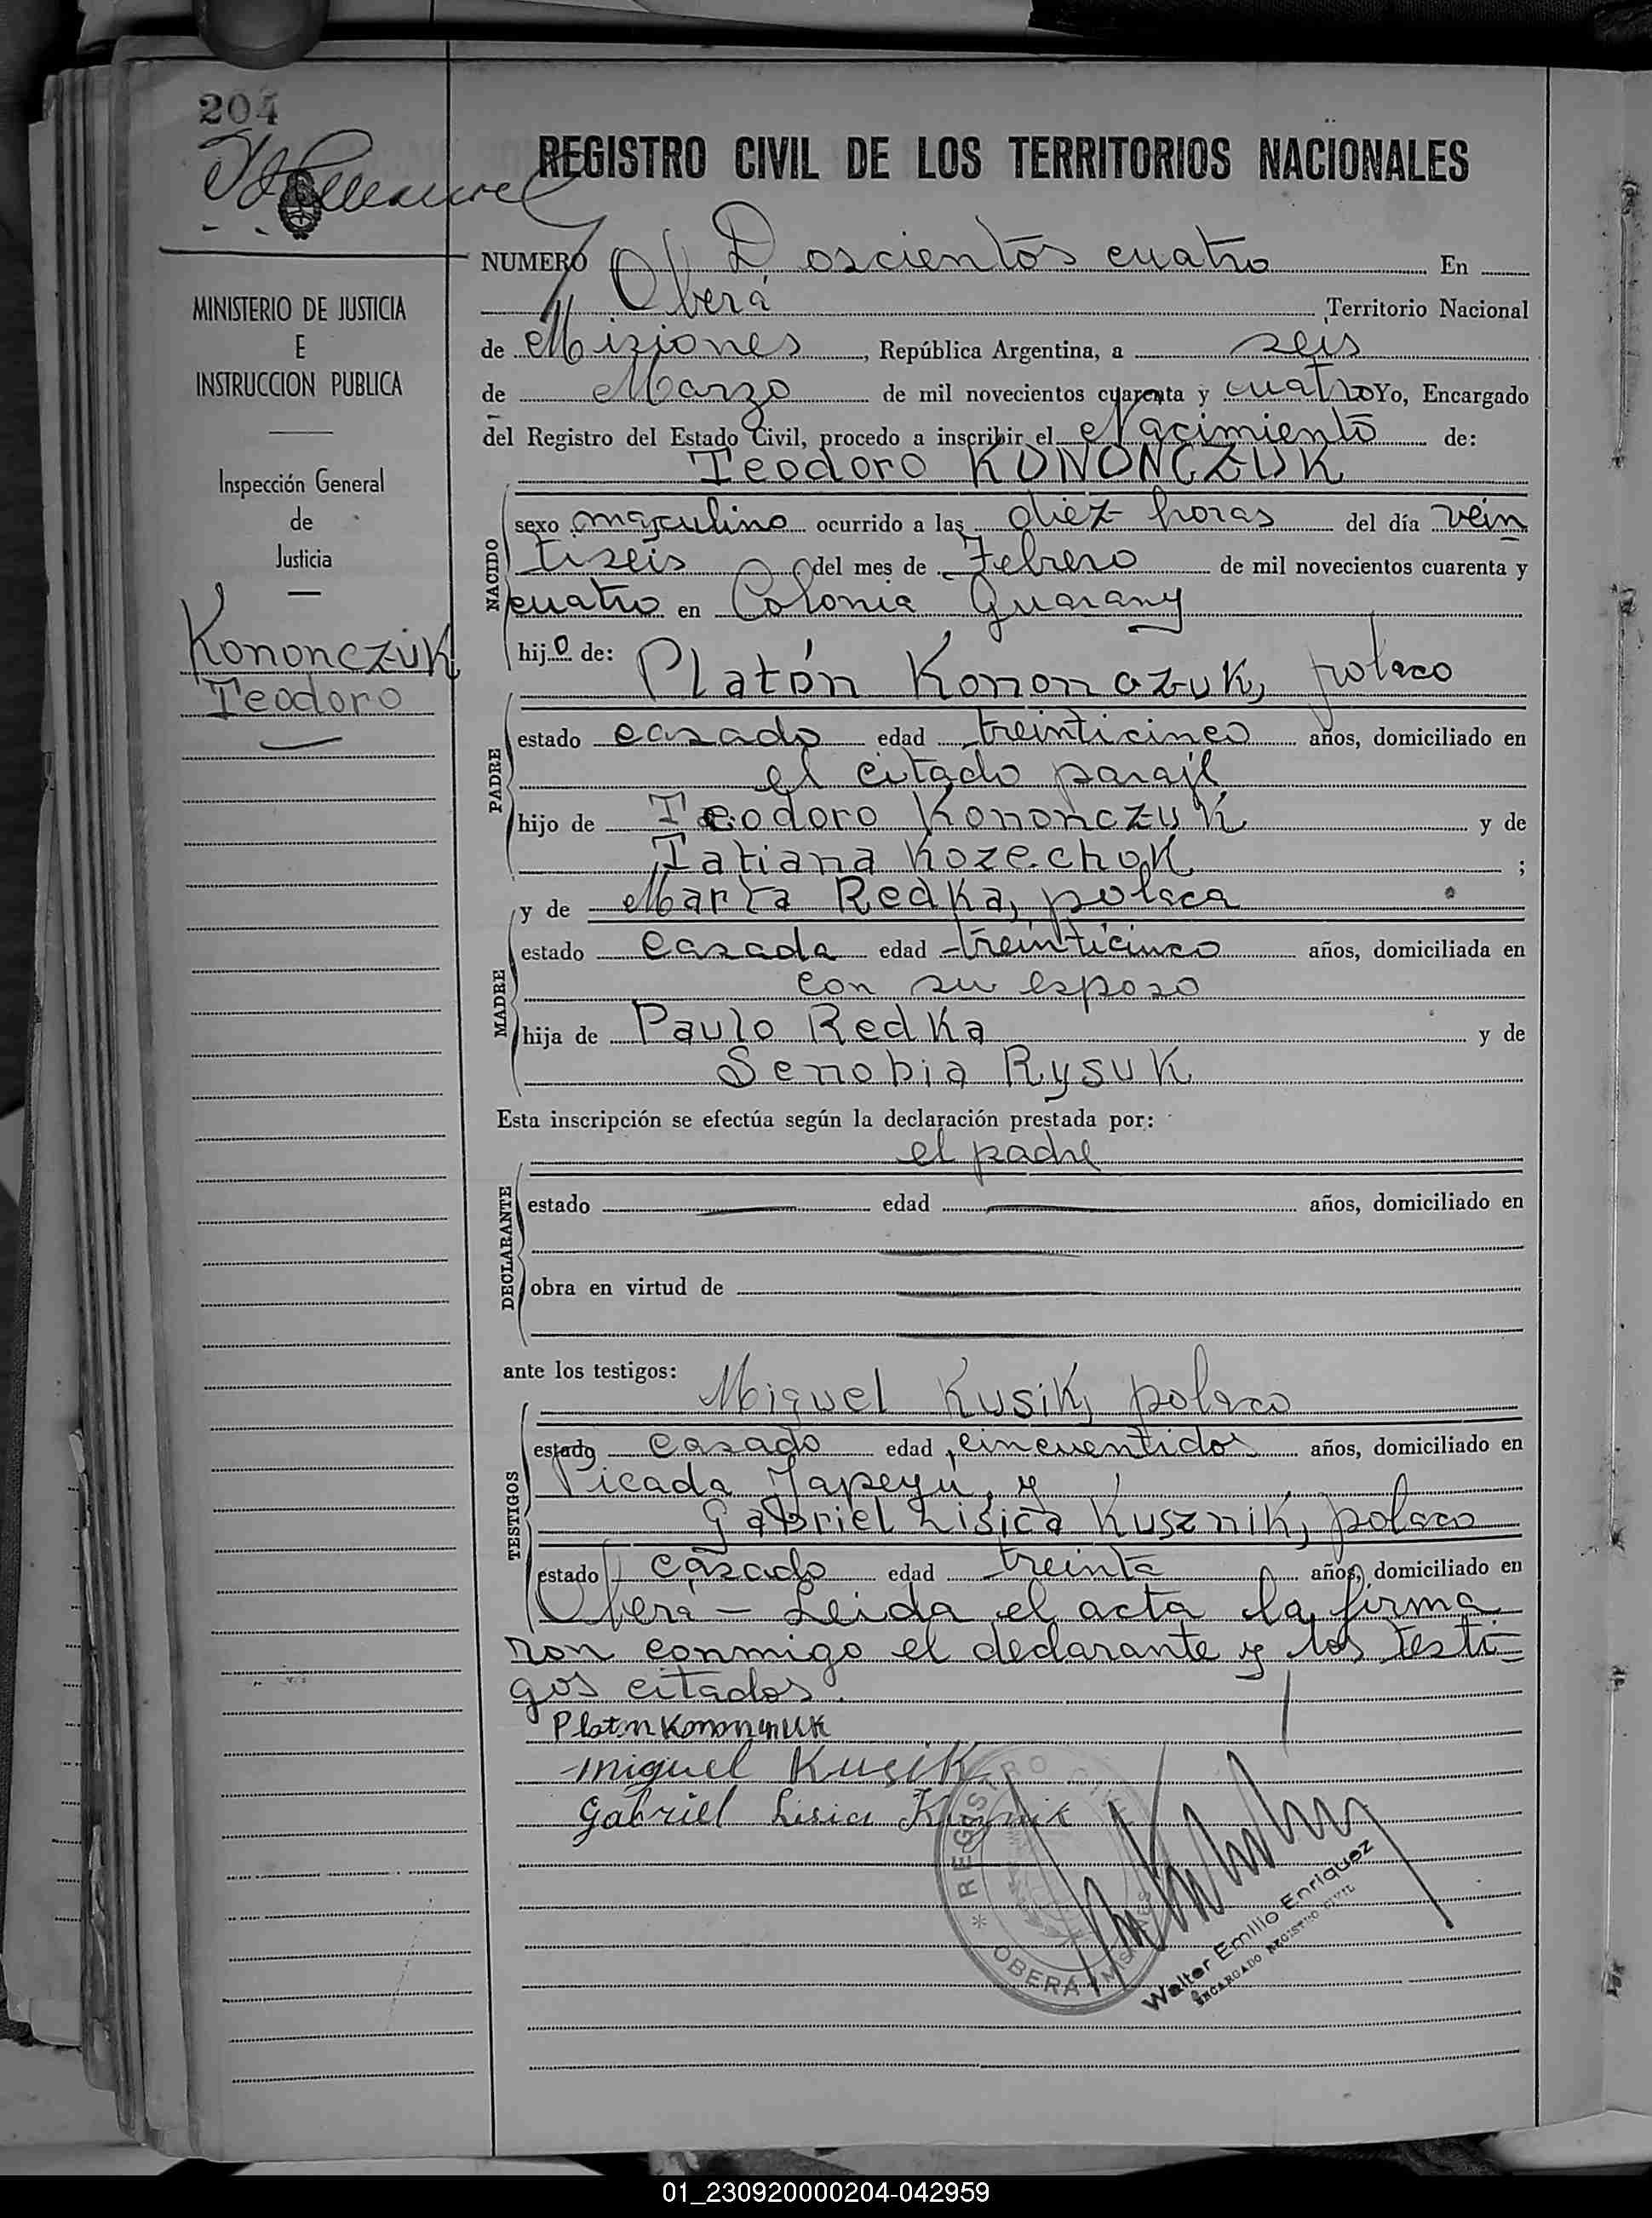 204
REGISTRO CIVIL DE LOS TERRITORIOS NACIONALES
MINISTERIO DE JUSTICIA
E
INSTRUCCION PUBLICA
Inspección General
de
Justicia
Kononczuk
Teodoro
NUMERO Doscientos cuatro En
Oberá Territorio Nacional
de Misiones, República Argentina, a seis
de Marzo de mil novecientos cuarenta y cuatro Yo, Encargado
del Registro del Estado Civil, procedo a inscribir el Nacimiento de:
Teodoro KONONCZUK
NACIDO
sexo masculino ocurrido a las diez horas del día vein
tiseis del mes de Febrero de mil novecientos cuarenta y
cuatro en Colonia Guarany
hijo de: Platón Kononczuk, polaco
PADRE
estado casado edad treinticinco años, domiciliado en
el citado paraje
hijo de Teodoro Kononczuk y de
Tatiana Kozechok ;
y de Marta Redka, polaca
MADRE
estado casada edad treinticinco años, domiciliada en
con su esposo
hija de Paulo Redka y de
Senobia Rysuk
Esta inscripción se efectúa según la declaración prestada por:
el padre
DECLARANTE
estado edad años, domiciliado en
obra en virtud de
ante los testigos: Miguel Kusik, polaco
TESTIGOS
estado casado edad cincuentidos años, domiciliado en
Picada Yapeyu, y
Gabriel Lisica Kusznik, polaco
estado casado edad treinta años, domiciliado en
Oberá - Leida el acta la firma
ron conmigo el declarante y los testi=
gos citados.
Platon Kononczuk
Miguel Kusik
Gabriel Lisica Kusznik
* REGISTRO CIVIL
OBERÁ (MISIONES)
Walter Emilio Enriquez
ENCARGADO REGISTRO CIVIL
01_230920000204-042959